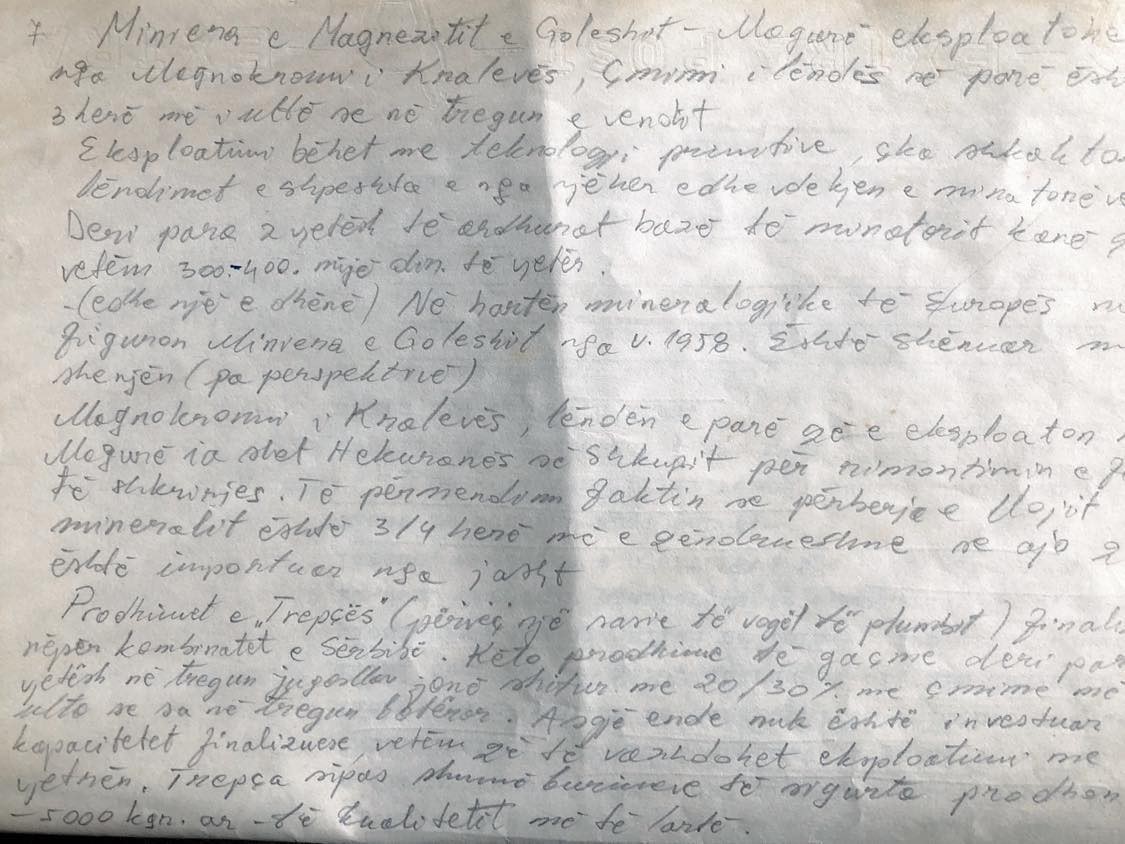 7 Miniera e Magnezitit e Goleshit - Magurë eksploatohe
nga Magnokromi i Kralevës, Çmimi i lëndës së parë ësh
3 herë më i ultë se në tregun e vendit
Eksploatimi bëhet me teknologji primitive, çka shkakto
lëndimet e shpeshta e nga njëher edhe vdekjen e minatorëve
Deri para 2 vjetësh të ardhurat bazë të minatorit kanë q
vetëm 300.-400. mijë din. të vjetër.
-(edhe një e dhënë) Në hartën mineralogjike të Europës
figuron Miniera e Goleshit nga v. 1958. Është shënuar m
shenjën (pa perspektivë)
Magnokromi i Kralevës, lëndën e parë që e eksploaton
Magurë ia shet Hekuranës së Shkupit për rimontimin e f
të shkrirjes. Të përmendim faktin se përberja e llojit
mineralit është 3/4 herë më e qëndrueshme se ajo q
është importuar nga jasht
Prodhimet e „Trepçës" (përveç një sasie të vogël të plumbit) finali
nëpër kombinatet e Sërbisë. Këto prodhime të gaçme deri par
vjetësh në tregun jugosllav janë shitur me 20/30% me çmime më
ulta se sa në tregun botëror. Asgjë ende nuk është investuar
kapacitetet finalizuese, vetëm që të vazhdohet eksploatimi me
vjetrën. Trepça sipas shumë burimeve të sigurta prodhon
-5000 kgr. ar - të kualitetit më të lartë.